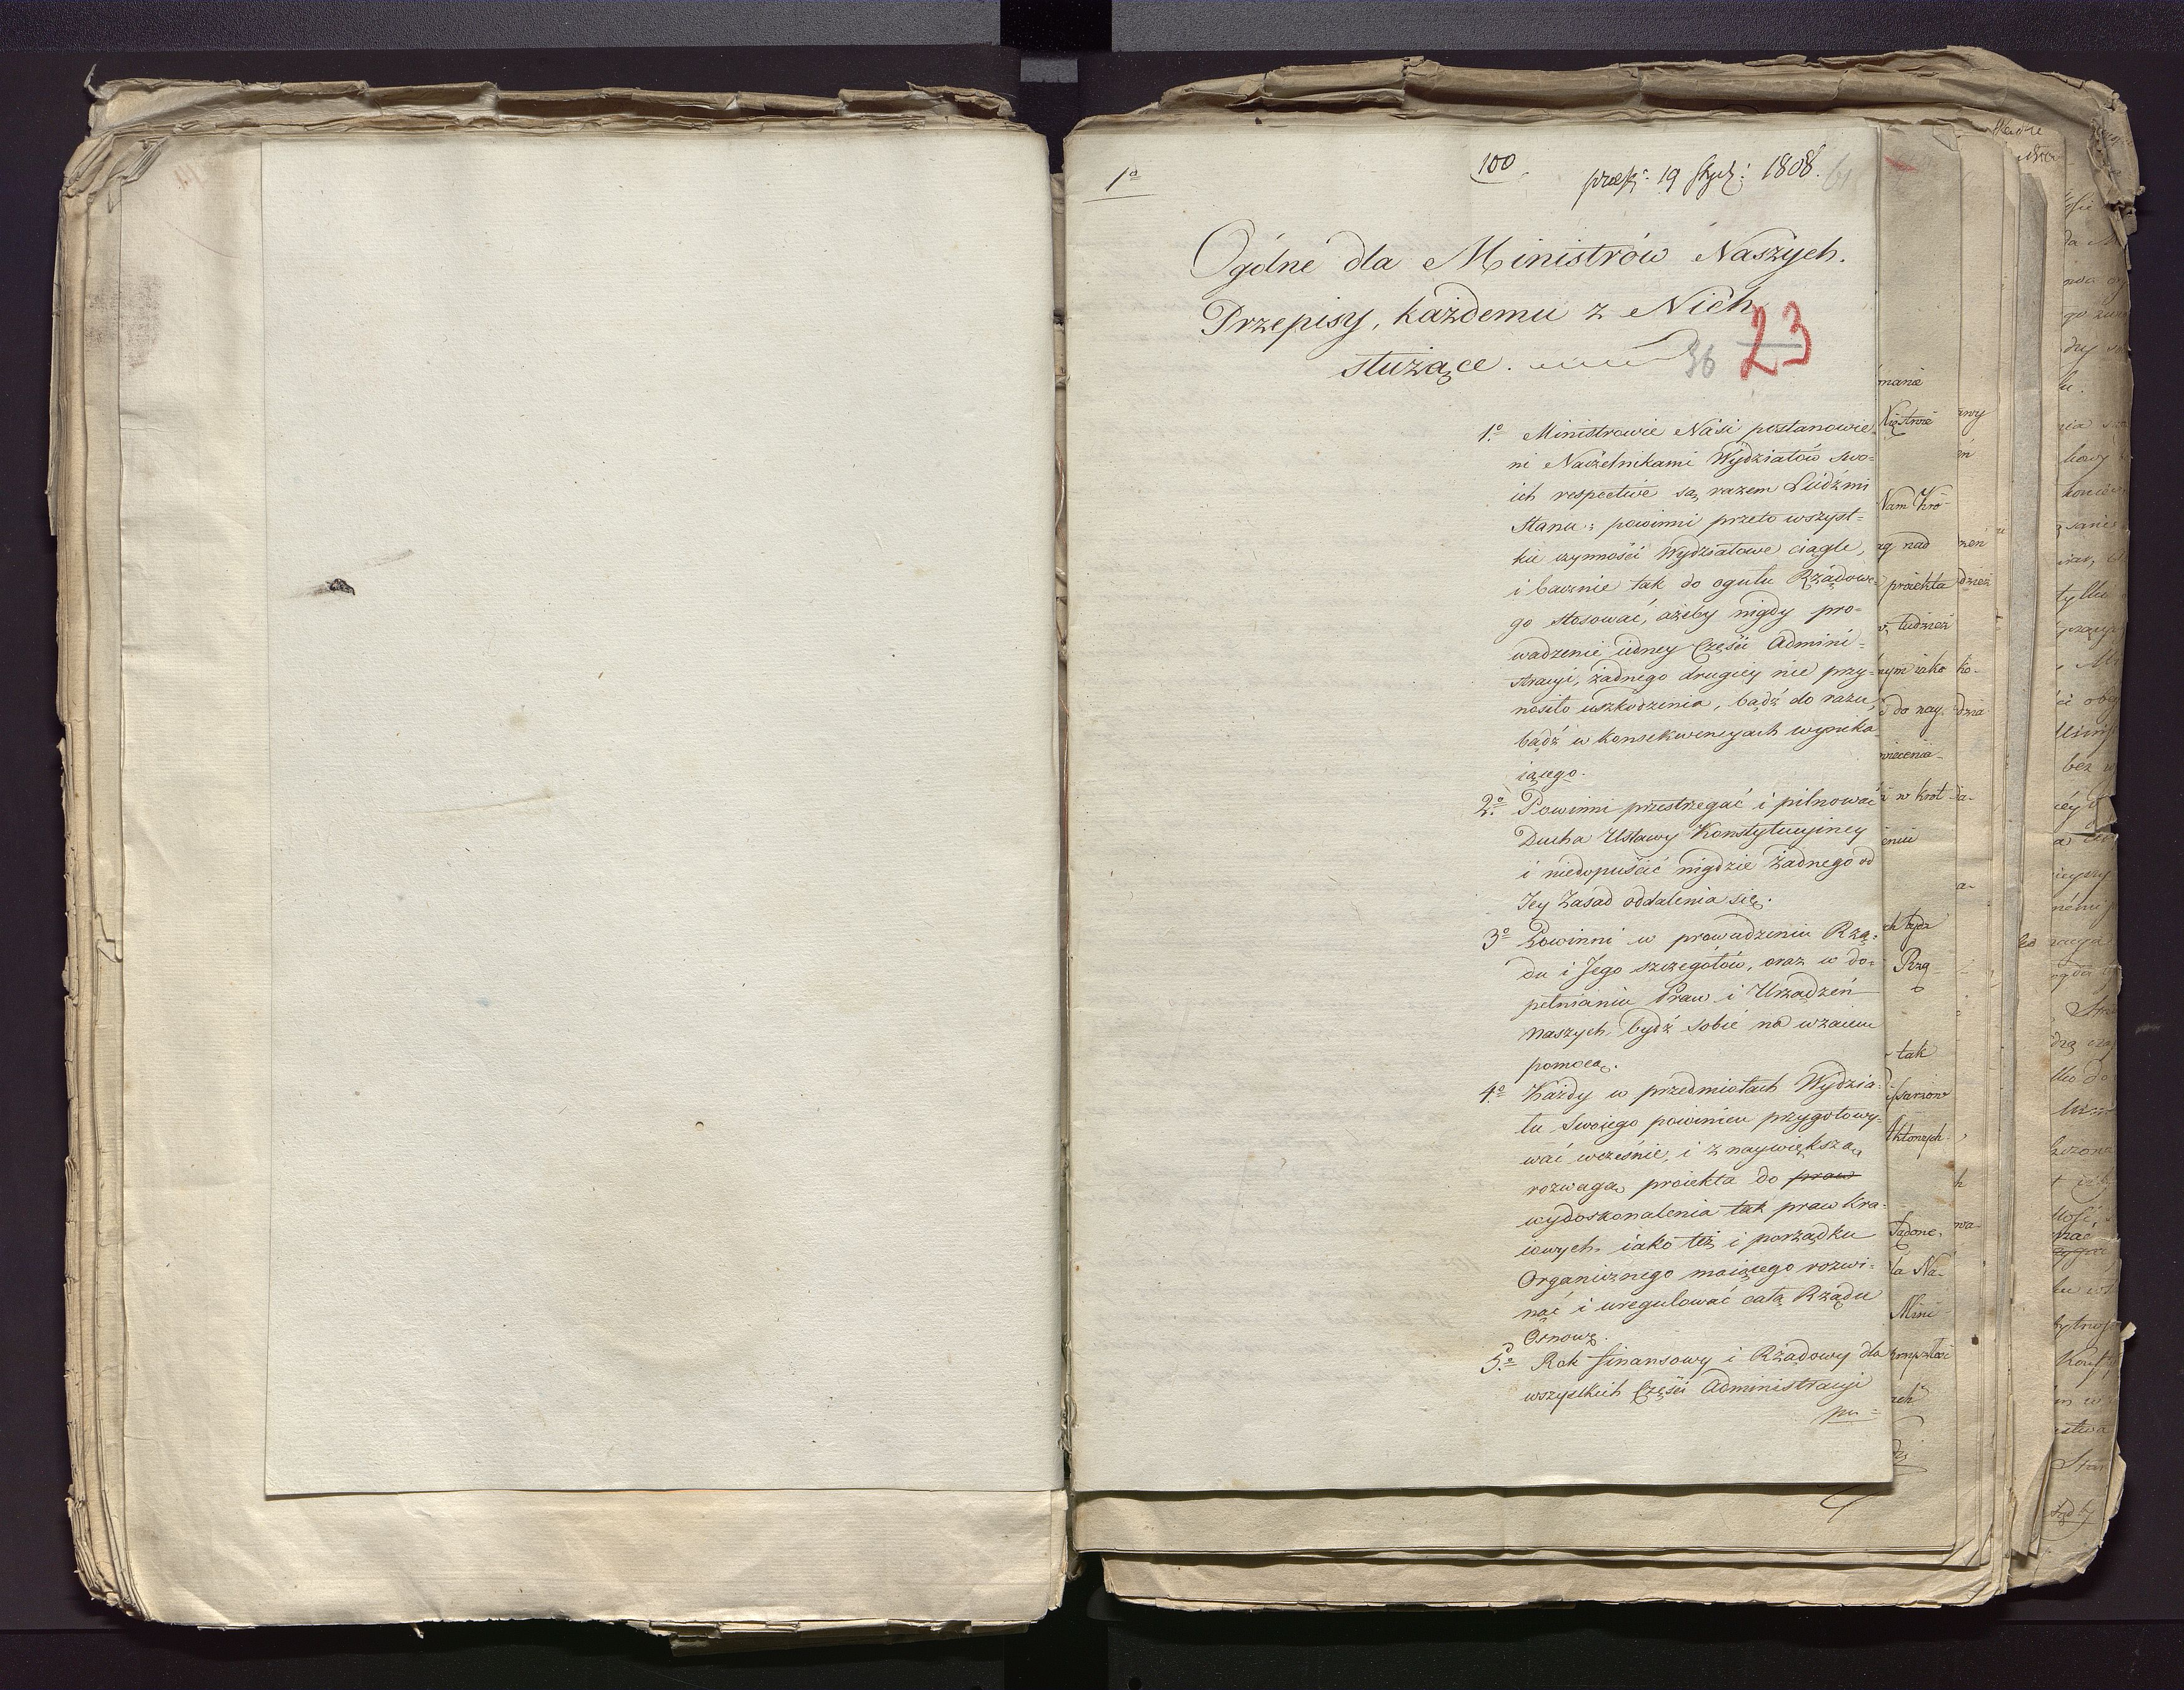 1º
100
praes: 19 Stycz: 1808.
61
Ogólne dla Ministrów Naszych.
Przepisy, każdemu z Nich
służące.
36 23
1º Ministrowie Nasi postanowie
ni Naczelnikami Wydziałów swo=
ich respective są razem Ludźmi
Stanu; powinni przeto wszyst=
kie czynności Wydziałowe ciągle,
i bacznie tak do ogułu Rządowe=
go stosować, ażeby nigdy pro=
wadzenie iedney Części Admini=
stracyi, żadnego drugiey nie przy=
nosiło uszkodzenia, bądź do razu,
bądź w konsekwencyach wynika
iącego.
2º Powinni przestrzegać i pilnować
Ducha Ustawy Konstytucyiney
i niedopuścić nigdzie żadnego od
Jey Zasad oddalenia się.
3º Powinni w prowadzeniu Rzą=
du i Jego szczegółów, oraz w do=
pełnianiu Praw i Urządzeń
Naszych bydź sobie na wzaiem
pomocą.
4º Każdy w przedmiotach Wydzia=
łu Swoiego powinien przygotowy=
wać wcześnie, i z naywiększą
rozwagą proiekta do praw
wydoskonalenia tak praw Kra=
iowych iako też i porządku
Organicznego maiącego rozwi=
nąć i uregulować całą Rządu
Osnowę.
5º Rok finansowy i Rządowy dla
wszystkich Części Administracyi
pu=